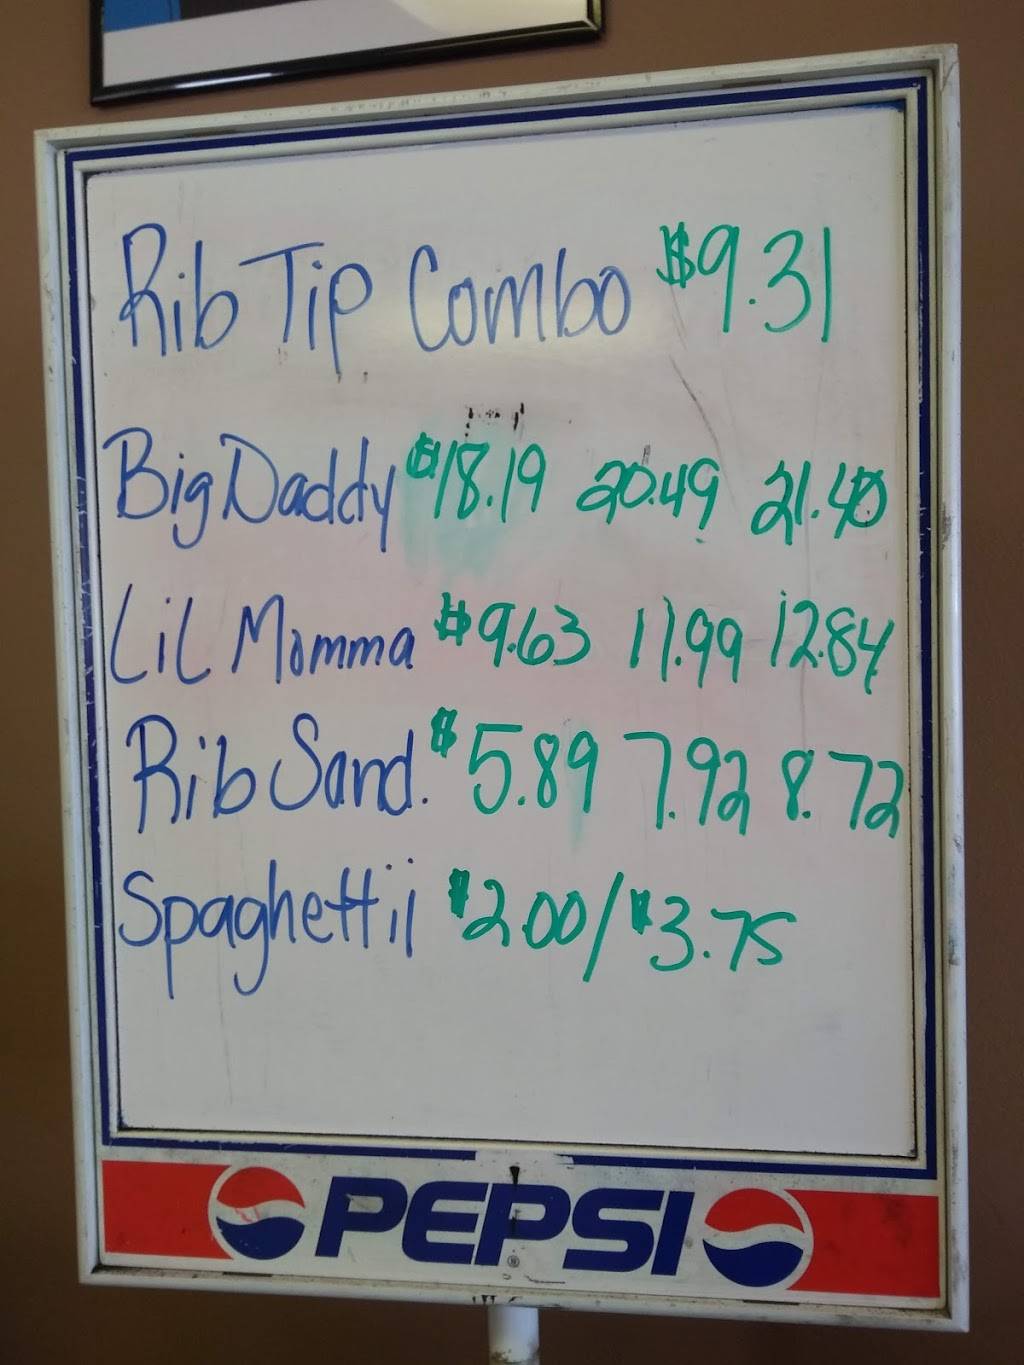 Rib Tip Combo $9.31
Big Daddy $18.19 20.49 21.40
LiL Momma $9.63 11.99 12.84
Rib Sand. $5.89 7.92 8.72
Spaghettii $2.00/$3.75
PEPSI